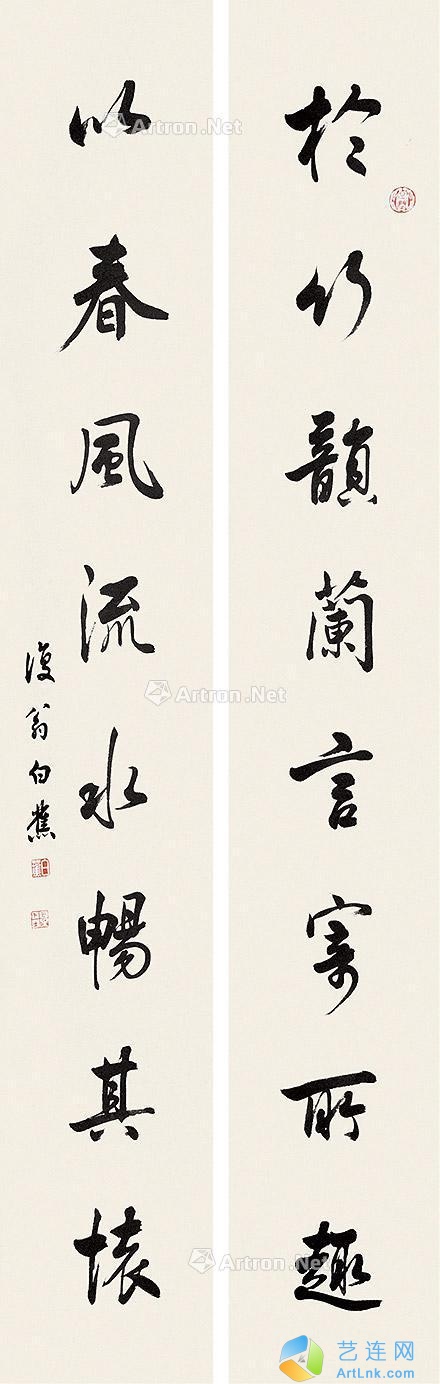 於竹韻蘭言寄所趣
以春風流水暢其懷
復翁白蕉
Artron.Net
Artron.Net
Artron.Net
Artron.Net
艺连网
ArtLnk.com